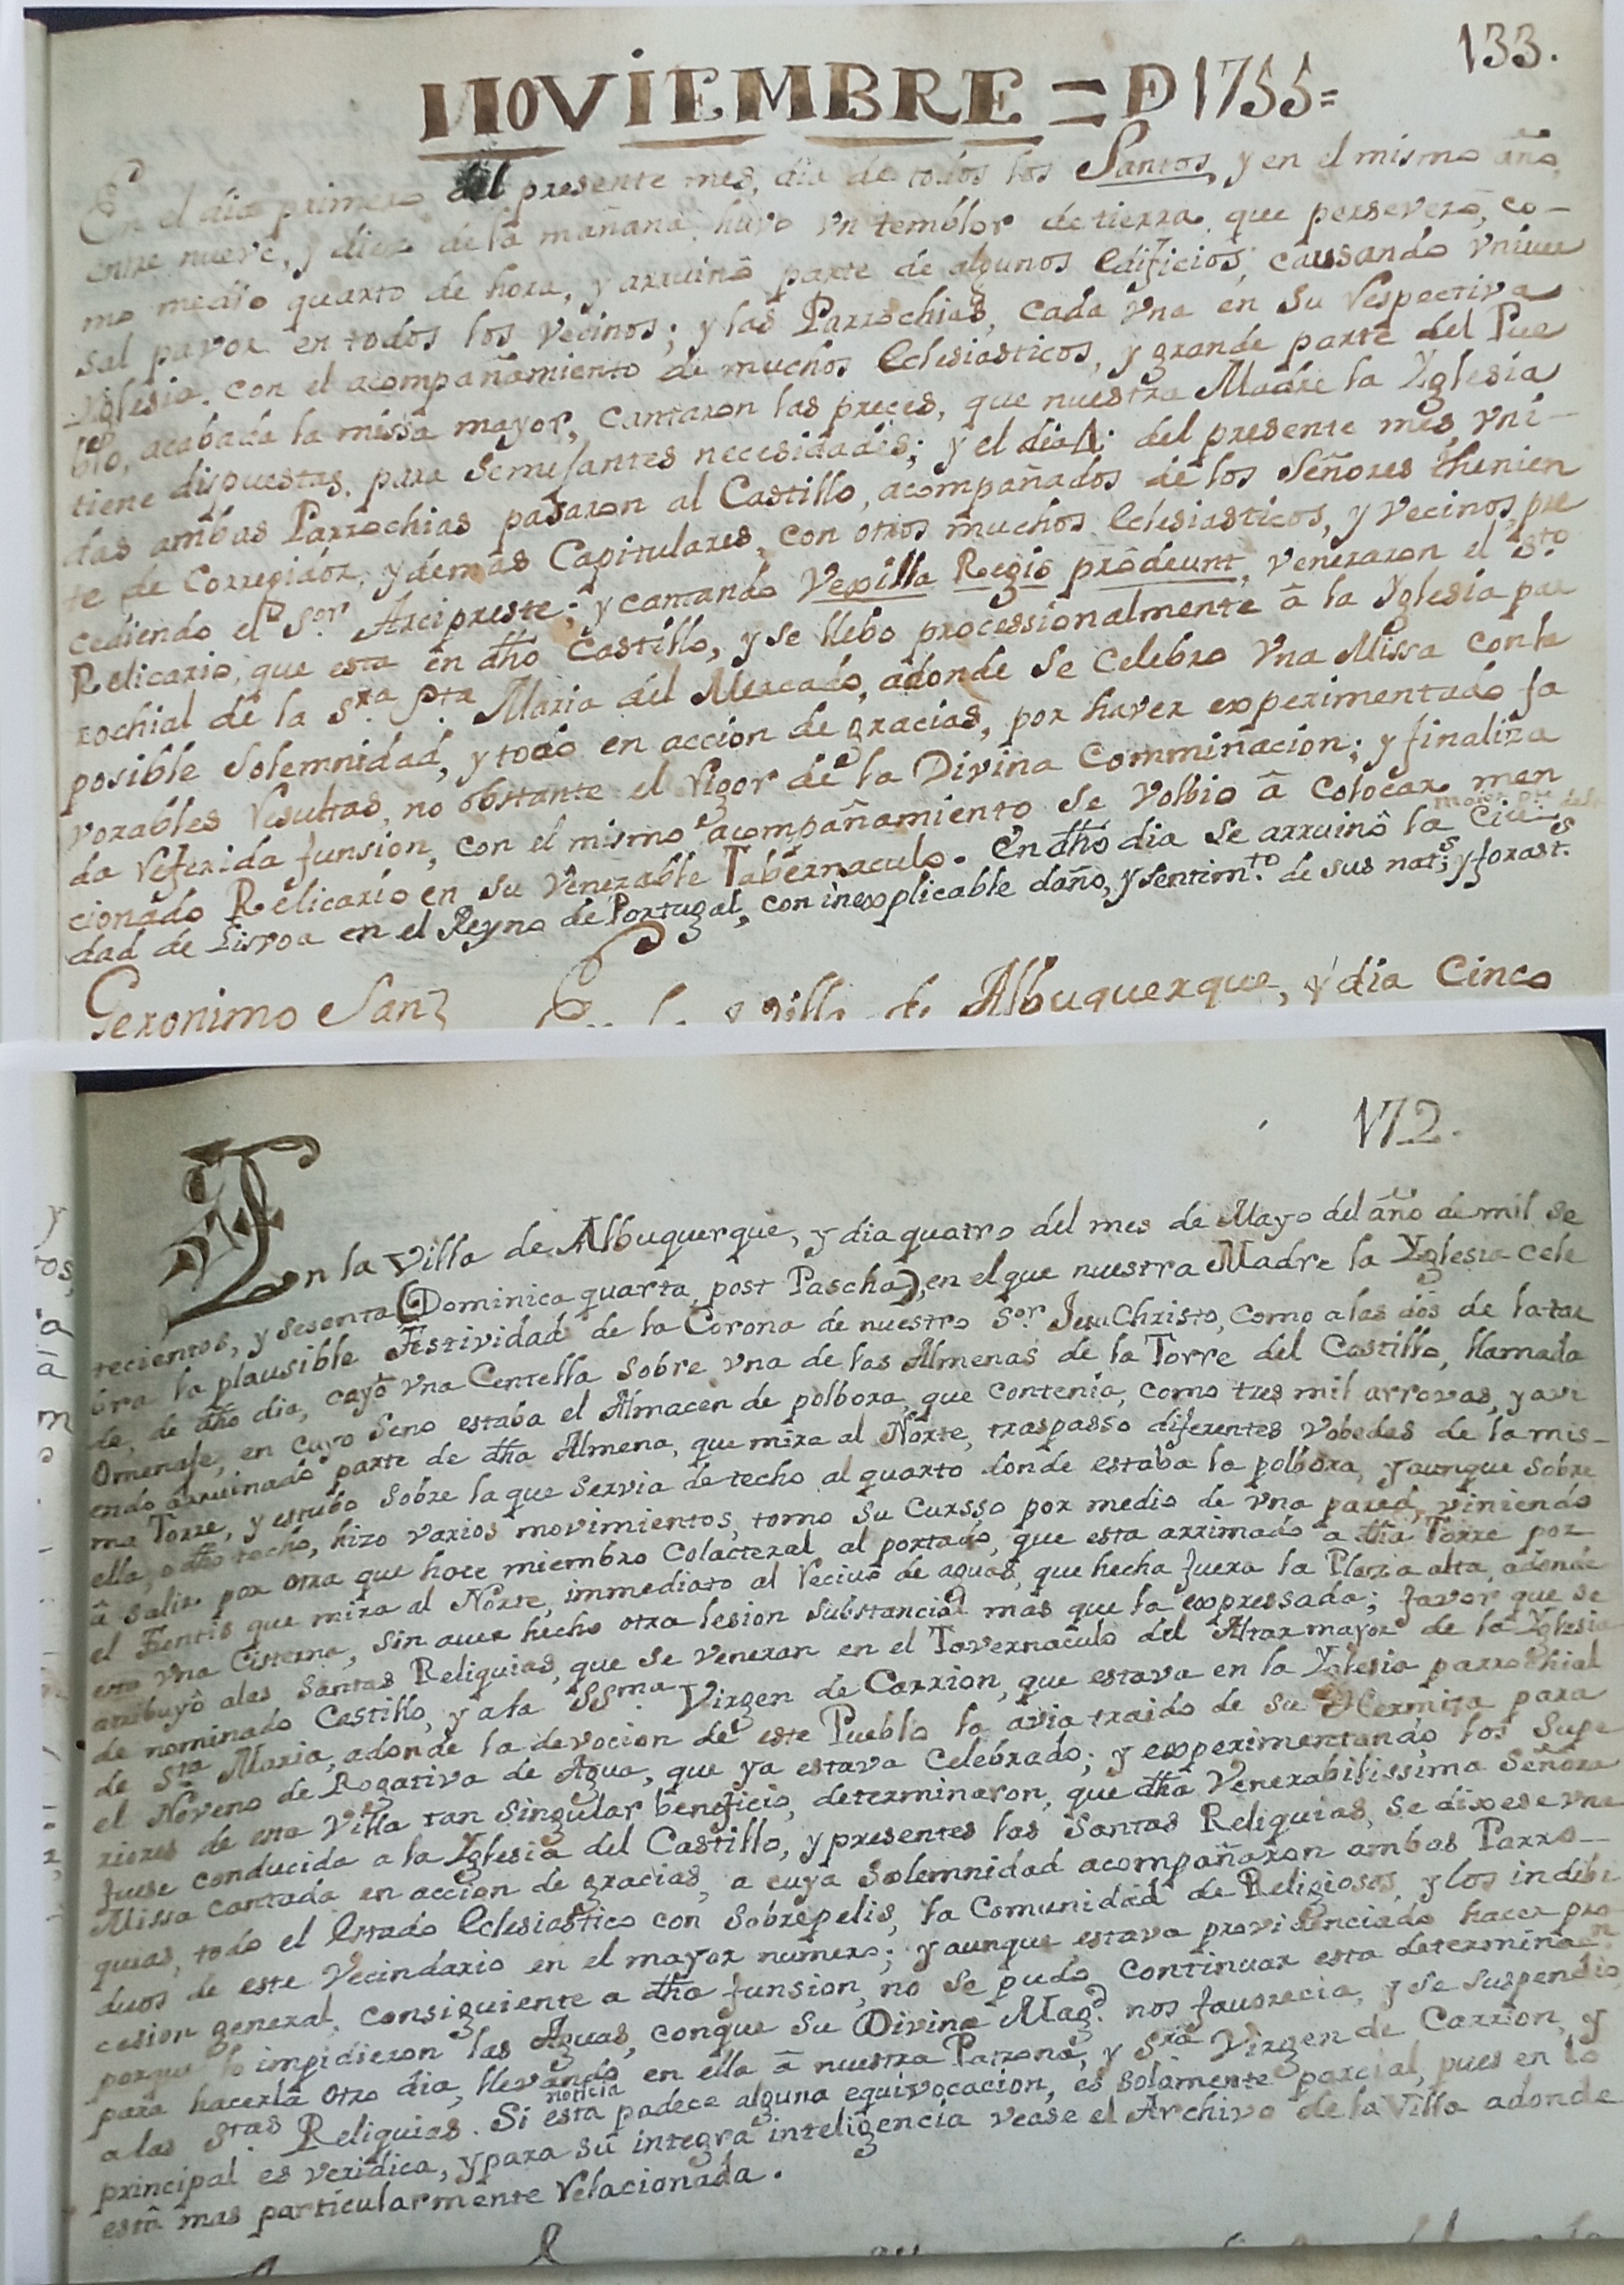 133.
NOVIEMBRE = D 1755=
En el dia primero del presente mes, dia de todos los Santos, y en el mismo año,
entre nueve, y diez de la mañana, huvo vn temblor de tierra, que perseverò, co-
mo medio quarto de hora, y arruinò parte de algunos edificios, causando vniver
sal pavor en todos los vecinos; y las Parrochias, cada vna en su respectiva
Yglesia, con el acompañamiento de muchos eclesiasticos, y grande parte del Pue
blo, acabada la missa mayor, cantaron las preces, que nuestra Madre la Yglesia
tiene dispuestas, para semejantes necesidades; y el dia del presente mes, vni-
das ambas Parrochias pasaron al Castillo, acompañados de los Señores thenien
te de Corregidor, y demàs Capitulares, con otros muchos eclesiasticos, y vecinos, pre
cediendo el Sor. Arcipreste; y cantando Vexilla Regis prodeunt, veneraron el Sto.
Relicario, que esta en dho Castillo, y se llebo processionalmente â la Yglesia par
rochial de la Sra. Sta. Maria del Mercado, adonde se celebro vna Missa con la
posible solemnidad, y todo en accion de gracias, por haver experimentado fa
vorables resultas, no obstante el rigor de la Divina Comminacion; y finaliza
da referida funsion, con el mismo acompañamiento se volbio â colocar men
cionado Relicario en su venerable Tabernaculo. En dho dia se arruinò la mayor pte. de la Ciu-
dad de Lisvoa en el Reyno de Portugal, con inexplicable daño, y sentimto. de sus nats. y forasts.
Geronimo Sanz
villa de Albuquerque, y dia Cinco
172.
En la Villa de Albuquerque, y dia quatro del mes de Mayo del año de mil se
tecientos, y sesenta (Dominica quarta, post Pascha), en el que nuestra Madre la Yglesia cele
bra la plausible Festividad de la Corona de nuestro Sor. Jesu Christo, como a las dos de la tar
de, de dho dia, cayò vna Centella sobre vna de las Almenas de la Torre del Castillo, llamada
Omenaje, en cuyo seno estaba el Almacen de polbora, que contenia, como tres mil arrovas, y avi
endo arruinado parte de dha Almena, que mira al Norte, traspasso diferentes vobedas de la mis-
ma Torre, y estubo sobre la que servia de techo al quarto donde estaba la polbora, y aunque sobre
ella, o dho techo, hizo varios movimientos, tomo su cursso por medio de vna pared, viniendo
â salir por otra que hace miembro colacteral al portado, que esta arrimado a dha Torre por
el Fentis que mira al Norte, immediato al recivo de aguas, que hecha fuera la Plaza alta, adonde
esta vna Cisterna, sin aver hecho otra lesion substancial mas que la expressada; favor que se
atribuyò a las Santas Reliquias, que se veneran en el Tavernaculo del Altar mayor de la Yglesia
de nominado Castillo, y a la SSma. Virgen de Carrion, que estava en la Yglesia parrochial
de Sta Maria, adonde la devocion de este Pueblo la avia traido de su Hermita para
el Noveno de Rogativa de Agua, que ya estava celebrado; y experimentando, los Supe
riores de esta Villa tan singular beneficio, determinaron, que dha Venerabilissima Señora
fuese conducida a la Yglesia del Castillo, y presentes las Santas Reliquias, se dixese vna
Missa cantada en accion de gracias, a cuya solemnidad acompañaron ambas Parro-
quias, todo el estado eclesiastico con sobrepelis, la Comunidad de Religiosos, y los indibi
duos de este Vecindario en el mayor numero; y aunque estava providenciado hacer pro
cesion general, consiguiente a dha funsion, no se pudo continuar esta determinaon.
porque lo impidieron las Aguas, con que su Divina Magd. nos favorecia, y se suspendio
para hacerla otro dia, llevando en ella â nuestra Patrona, y Sra Virgen de Carrion, y
a las Stas. Reliquias. Si esta noticia padece alguna equivocacion, es solamente parcial, pues en lo
principal es veridica, y para su integra inteligencia vease el Archivo de la Villa adonde
està mas particularmente relacionada.